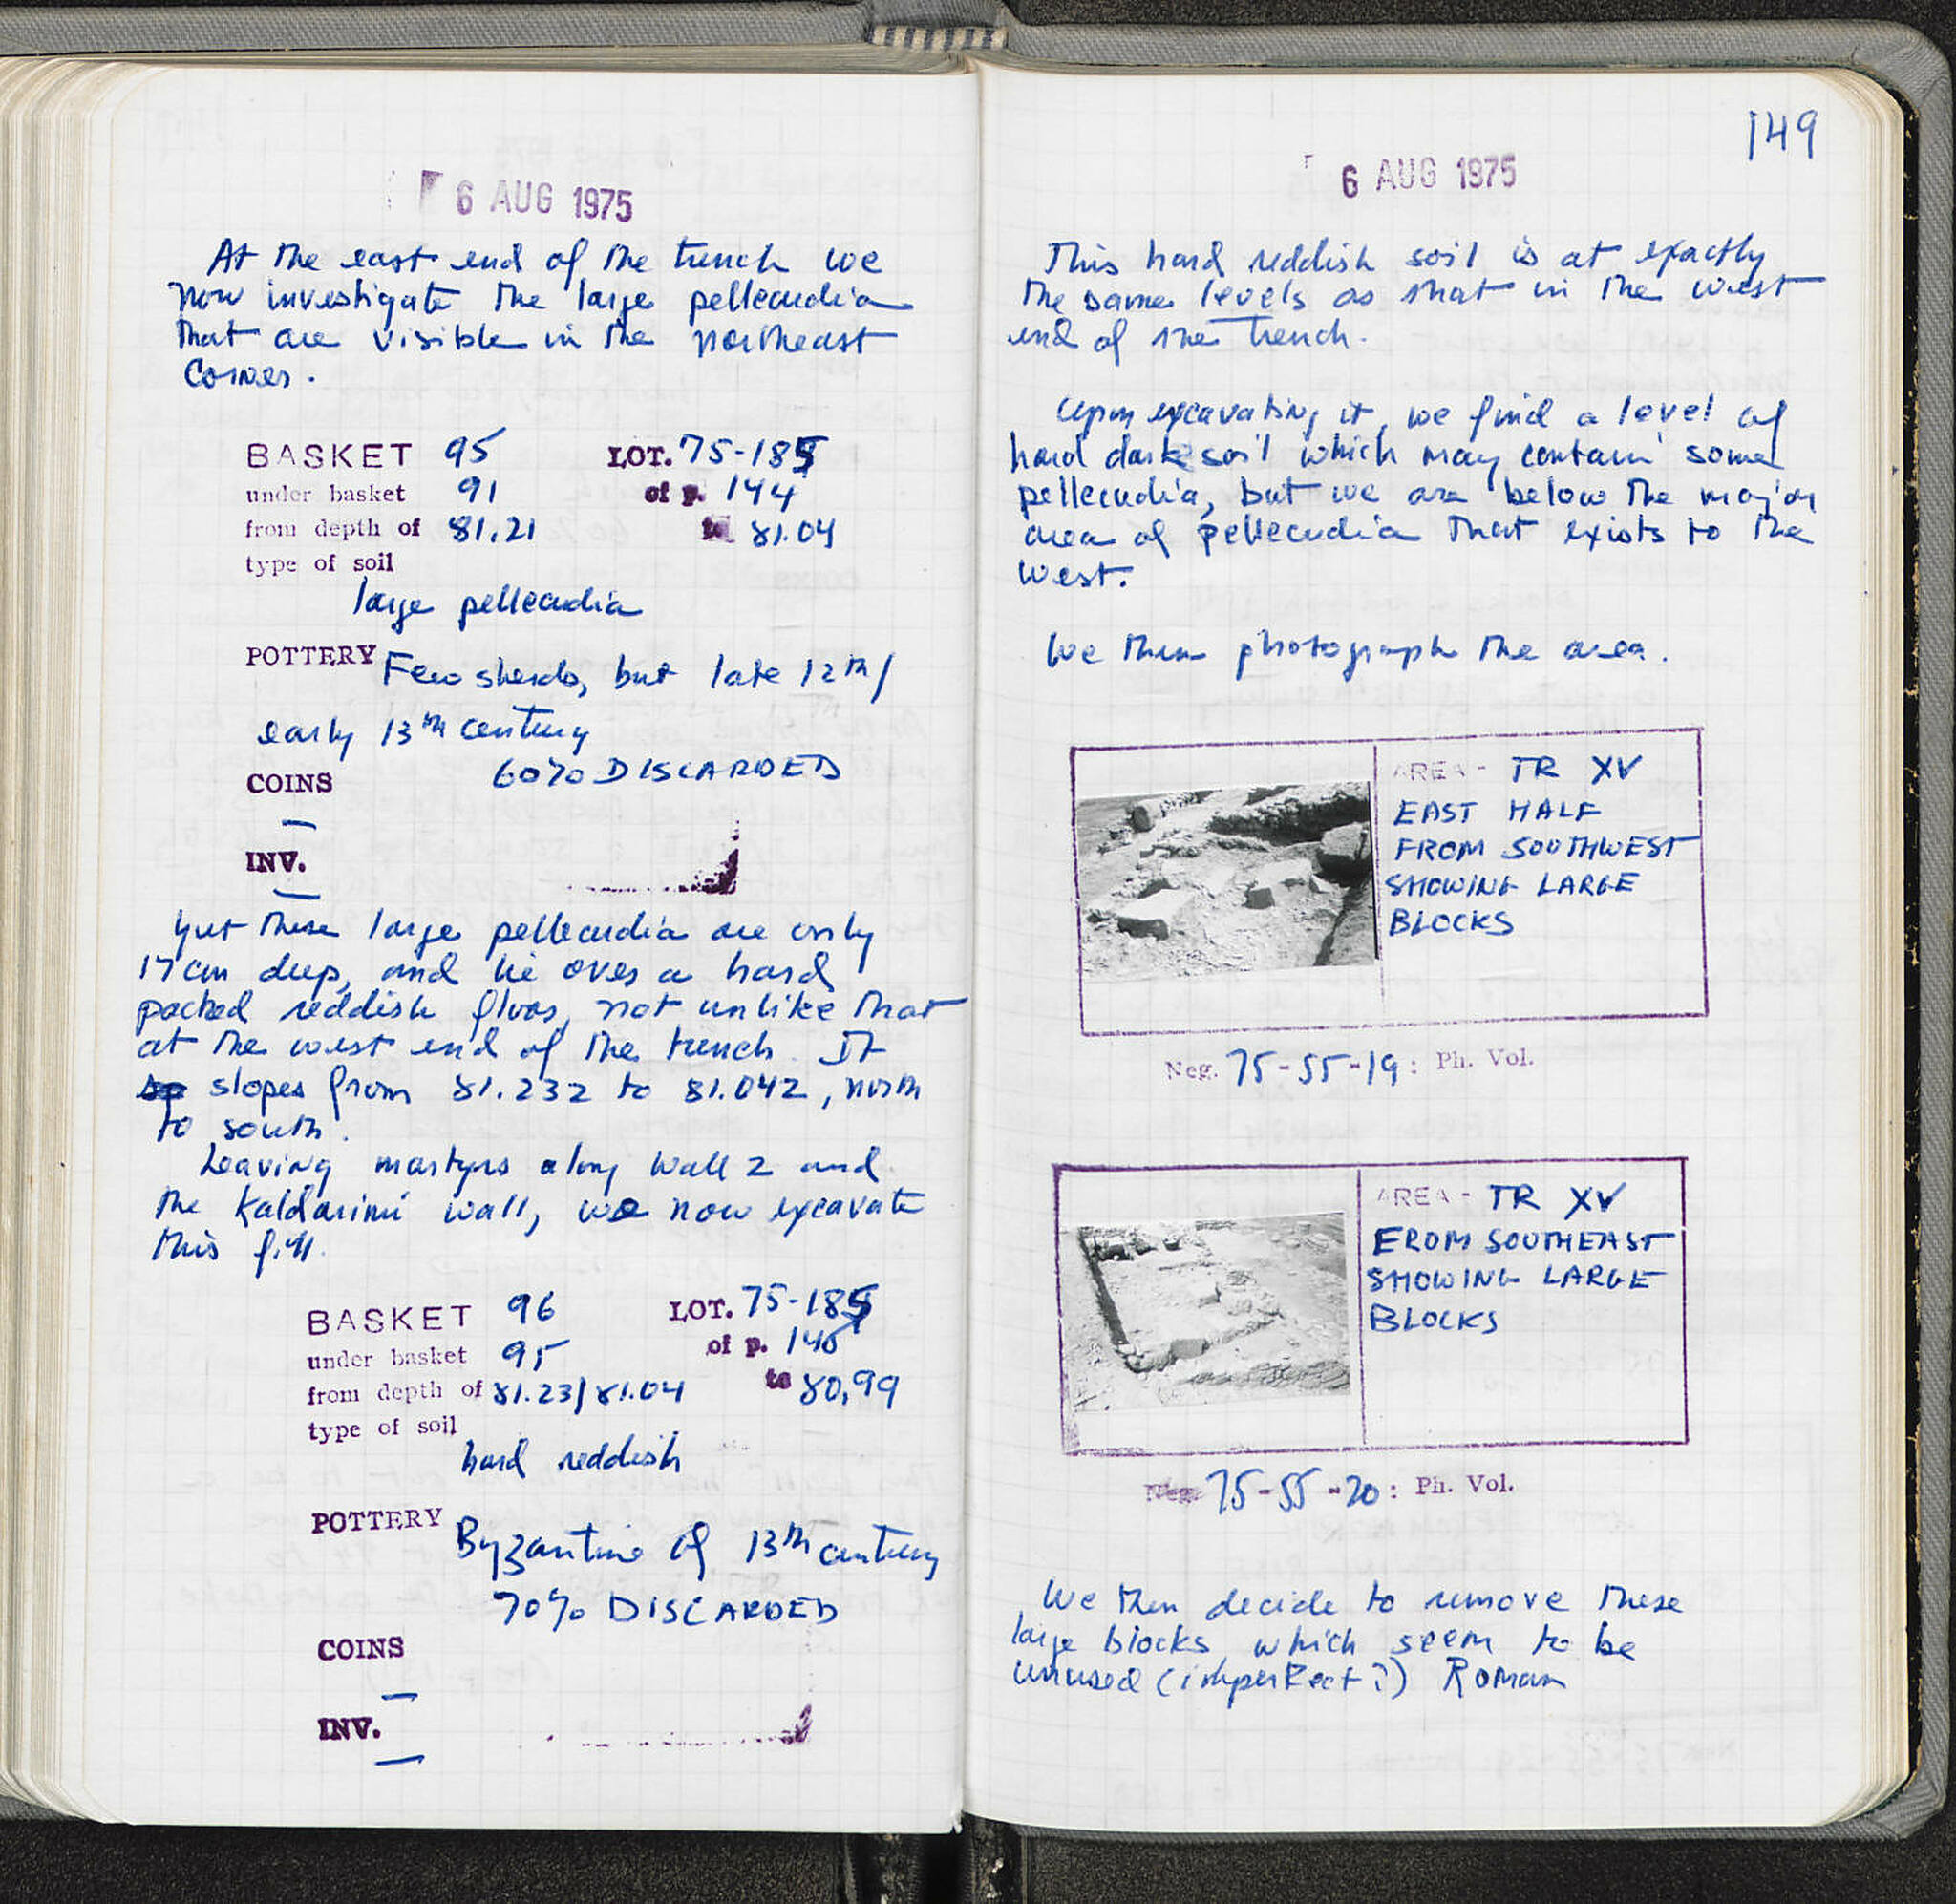 6 AUG 1975
At the east end of the trench we
now investigate the large pellecudia
that are visible in the northeast
corner.
BASKET 95 LOT. 75-185
under basket 91 of p. 144
from depth of 81.21 to 81.04
type of soil
large pellecudia
POTTERY Few sherds, but late 12th/
early 13th century
60% DISCARDED
COINS
—
INV.
—
Yet these large pellecudia are only
17 cm deep, and lie over a hard
packed reddish floor, not unlike that
at the west end of the trench. It
slopes from 81.232 to 81.042, north
to south.
Leaving martyrs along wall 2 and
the Kaldarimi wall, we now excavate
this fill.
BASKET 96 LOT. 75-185
under basket 95 of p.
from depth of 81.23/81.04 to 80,99
type of soil
hard reddish
POTTERY
Byzantine of 13th century
70% DISCARDED
COINS
—
INV.
—
149
6 AUG 1975
This hard reddish soil is at exactly
the same levels as that in the west
end of the trench.
Upon excavating it, we find a level of
hard dark soil which may contain some
pellecudia, but we are below the major
area of pellecudia that exists to the
west.
We then photograph the area.
AREA - TR XV
EAST HALF
FROM SOUTHWEST
SHOWING LARGE
BLOCKS
Neg. 75-55-19: Ph. Vol.
AREA - TR XV
FROM SOUTHEAST
SHOWING LARGE
BLOCKS
Neg. 75-55-20: Ph. Vol.
We then decide to remove these
large blocks which seem to be
unused (imperfect?) Roman